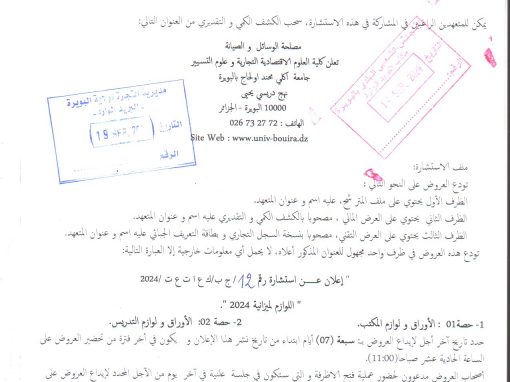 يمكن للمتعهدين الراغبين في المشاركة في هذه الاستشارة، سحب الكشف الكمي و التقديري من العنوان التالي:
مصلحة الوسائل و الصيانة
تعلن كلية العلوم الاقتصادية التجارية و علوم التسيير
جامعة أكلي محند اولحاج بالبويرة
نهج دريسي يحيى
10000 البويرة - الجزائر
الهاتف : 72 27 73 026
Site Web : www.univ-bouira.dz
مديرية التجارة لولاية البويرة
- البريد الوارد -
التاريخ
الرقم
ملف الاستشارة:
تودع العروض على النحو التالي :
الظرف الأول يحتوي على ملف المترشح، عليه اسم و عنوان المتعهد.
الظرف الثاني يحتوي على العرض المالي ، مصحوبا بالكشف الكمي و التقديري عليه اسم و عنوان المتعهد.
الظرف الثالث يحتوي على العرض التقني، مصحوبا بنسخة السجل التجاري و بطاقة التعريف الجبائي عليه اسم و عنوان المتعهد.
تودع هذه العروض في ظرف واحد مجهول للعنوان المذكور أعلاه، لا يحمل أي معلومات خارجية إلا العبارة التالية:
" إعلان عن استشارة رقم 12/ج ب/ك ع ا ت ع ت /2024
"اللوازم لميزانية 2024 ".
1- حصة01 : الأوراق و لوازم المكتب. 2- حصة 02: الأوراق و لوازم التدريس.
حدد تاريخ آخر أجل لإيداع العروض بـ: سبعة (07) أيام ابتداء من تاريخ نشر هذا الإعلان و يكون في آخر فترة من تحضير العروض على
الساعة الحادية عشر صباحا(11:00).
أصحاب العروض مدعوون حضور عملية فتح الاظرفة و التي ستكون في جلسة علنية في آخر يوم من الأجل المحدد لإيداع العروض على